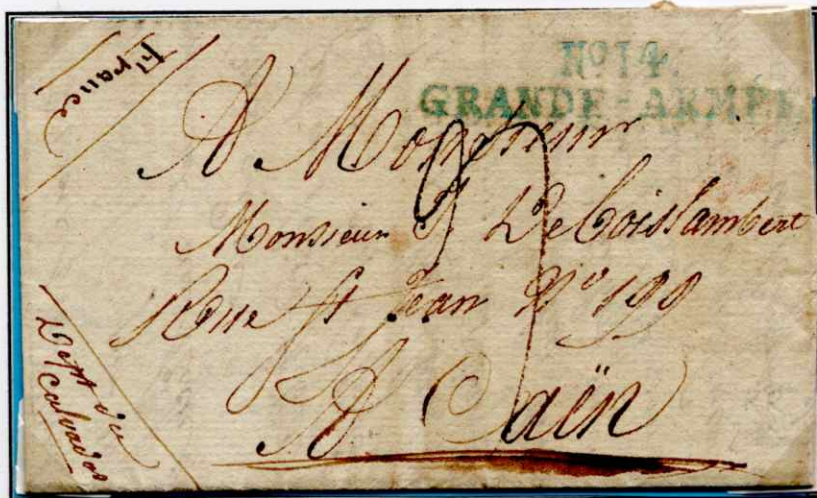 France
No 14.
GRANDE-ARMÉE
A Monsieur
Monsieur DeBoislambert
Rue St Jean No 199
A Caën
Dept du
Calvados